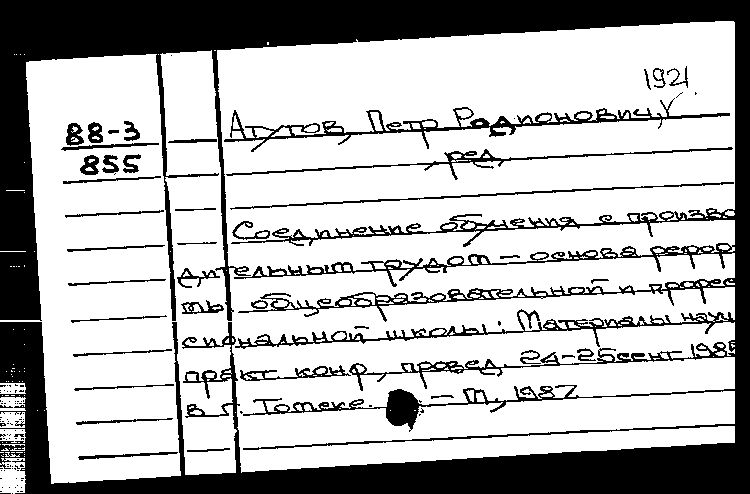 1921
88-3
Атутов, Петр Родионович,
855
ред.
Соединение обучения с произво
дительным трудом — основа рефор
мы общеобразовательной и профес
сиональной школы: Материалы науч
практ конф, провед. 24-25 сент 1985
в г. Томске. — М., 1987